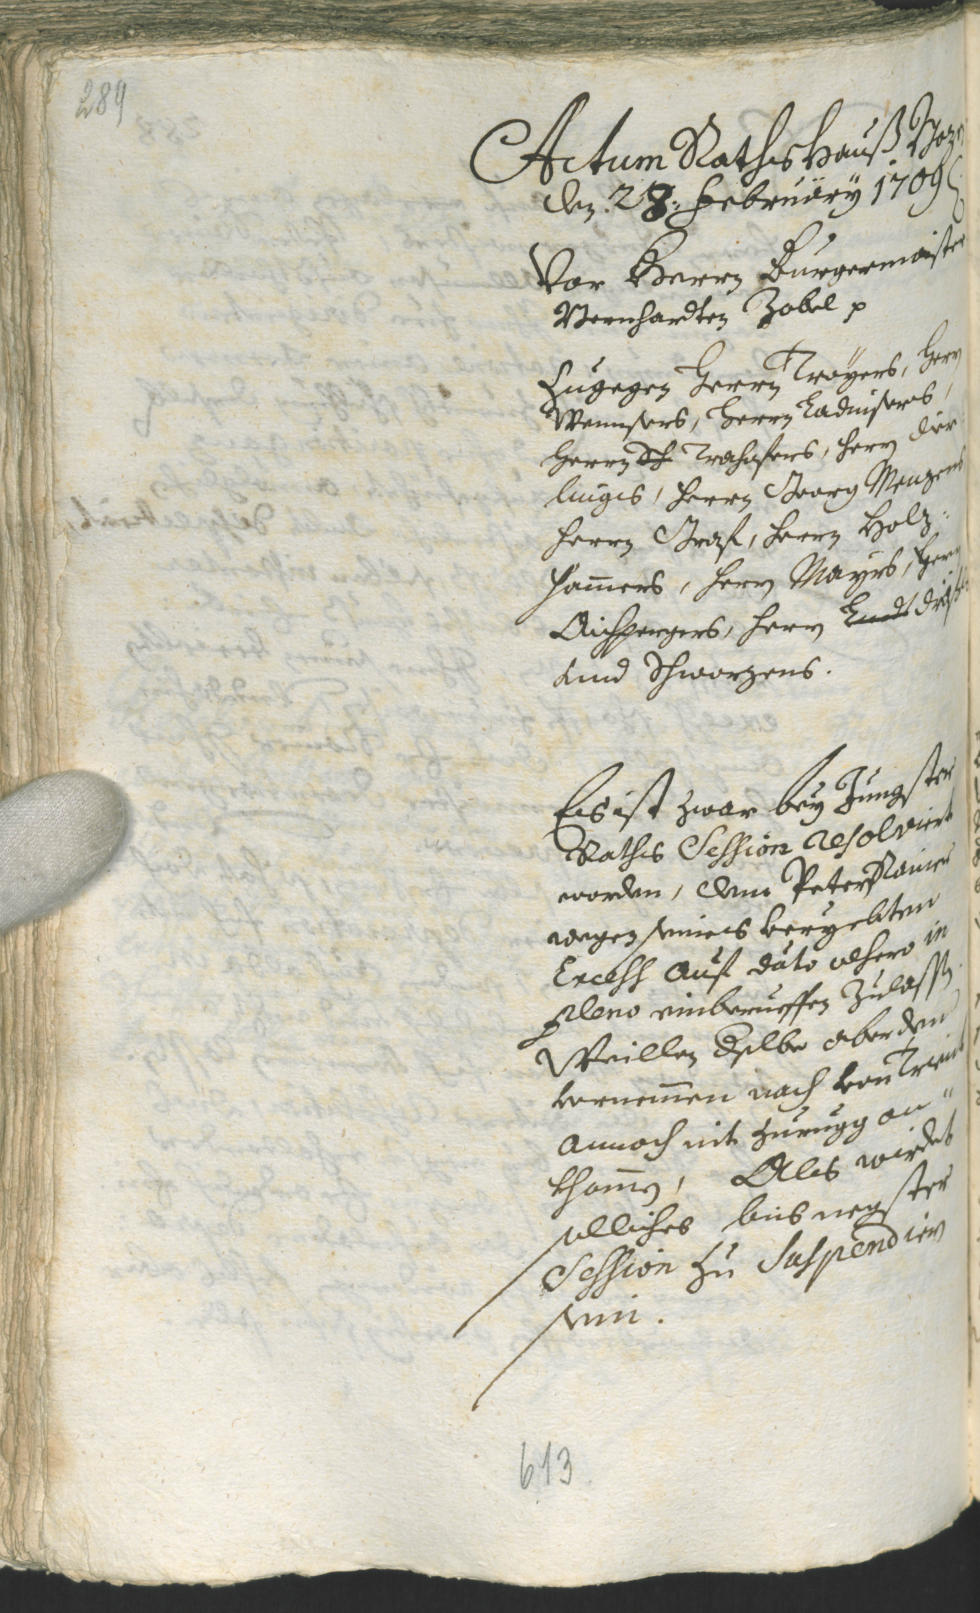 289
Actum Rathshauß Boze
den 28: February 1709
Vor Herrn Burgermaister
Bernhardten Zobel p
Zugegen Herrn Troyers, Herrn
Wennsers, Herrn Ladurners,
Herrn Trahasers, Herrn Dier
lings, Herrn Georg Menzens
Herrn Graf, Herrn Holz-
hamers, Herrn Mayrs, Herrn
Aichpergers, Herrn
Und Schwarzens.
Es ist zwar bey Jungster
Raths Session resolviert
worden, dem Peter Rainer
wegen seines veryebten
Excess auf dato alhero in
pleno einberueffen zulassen
Weillen dselbe aber dem
vernemmen nach von Trient
annoch nit zurugg an-
khomen, Als wirdet
solliches bis negster
Session zu suspendiern
sein.
613